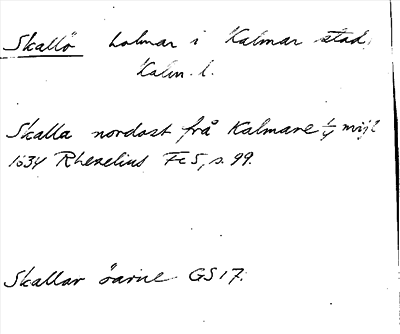 Skallö holmar i Kalmar stad,
Kalm. l.
Skalla nordost frå Kalmare 1/4 mijl
1634 Rhezelius Fc5, s. 99.
Skallar öarne GS 17.